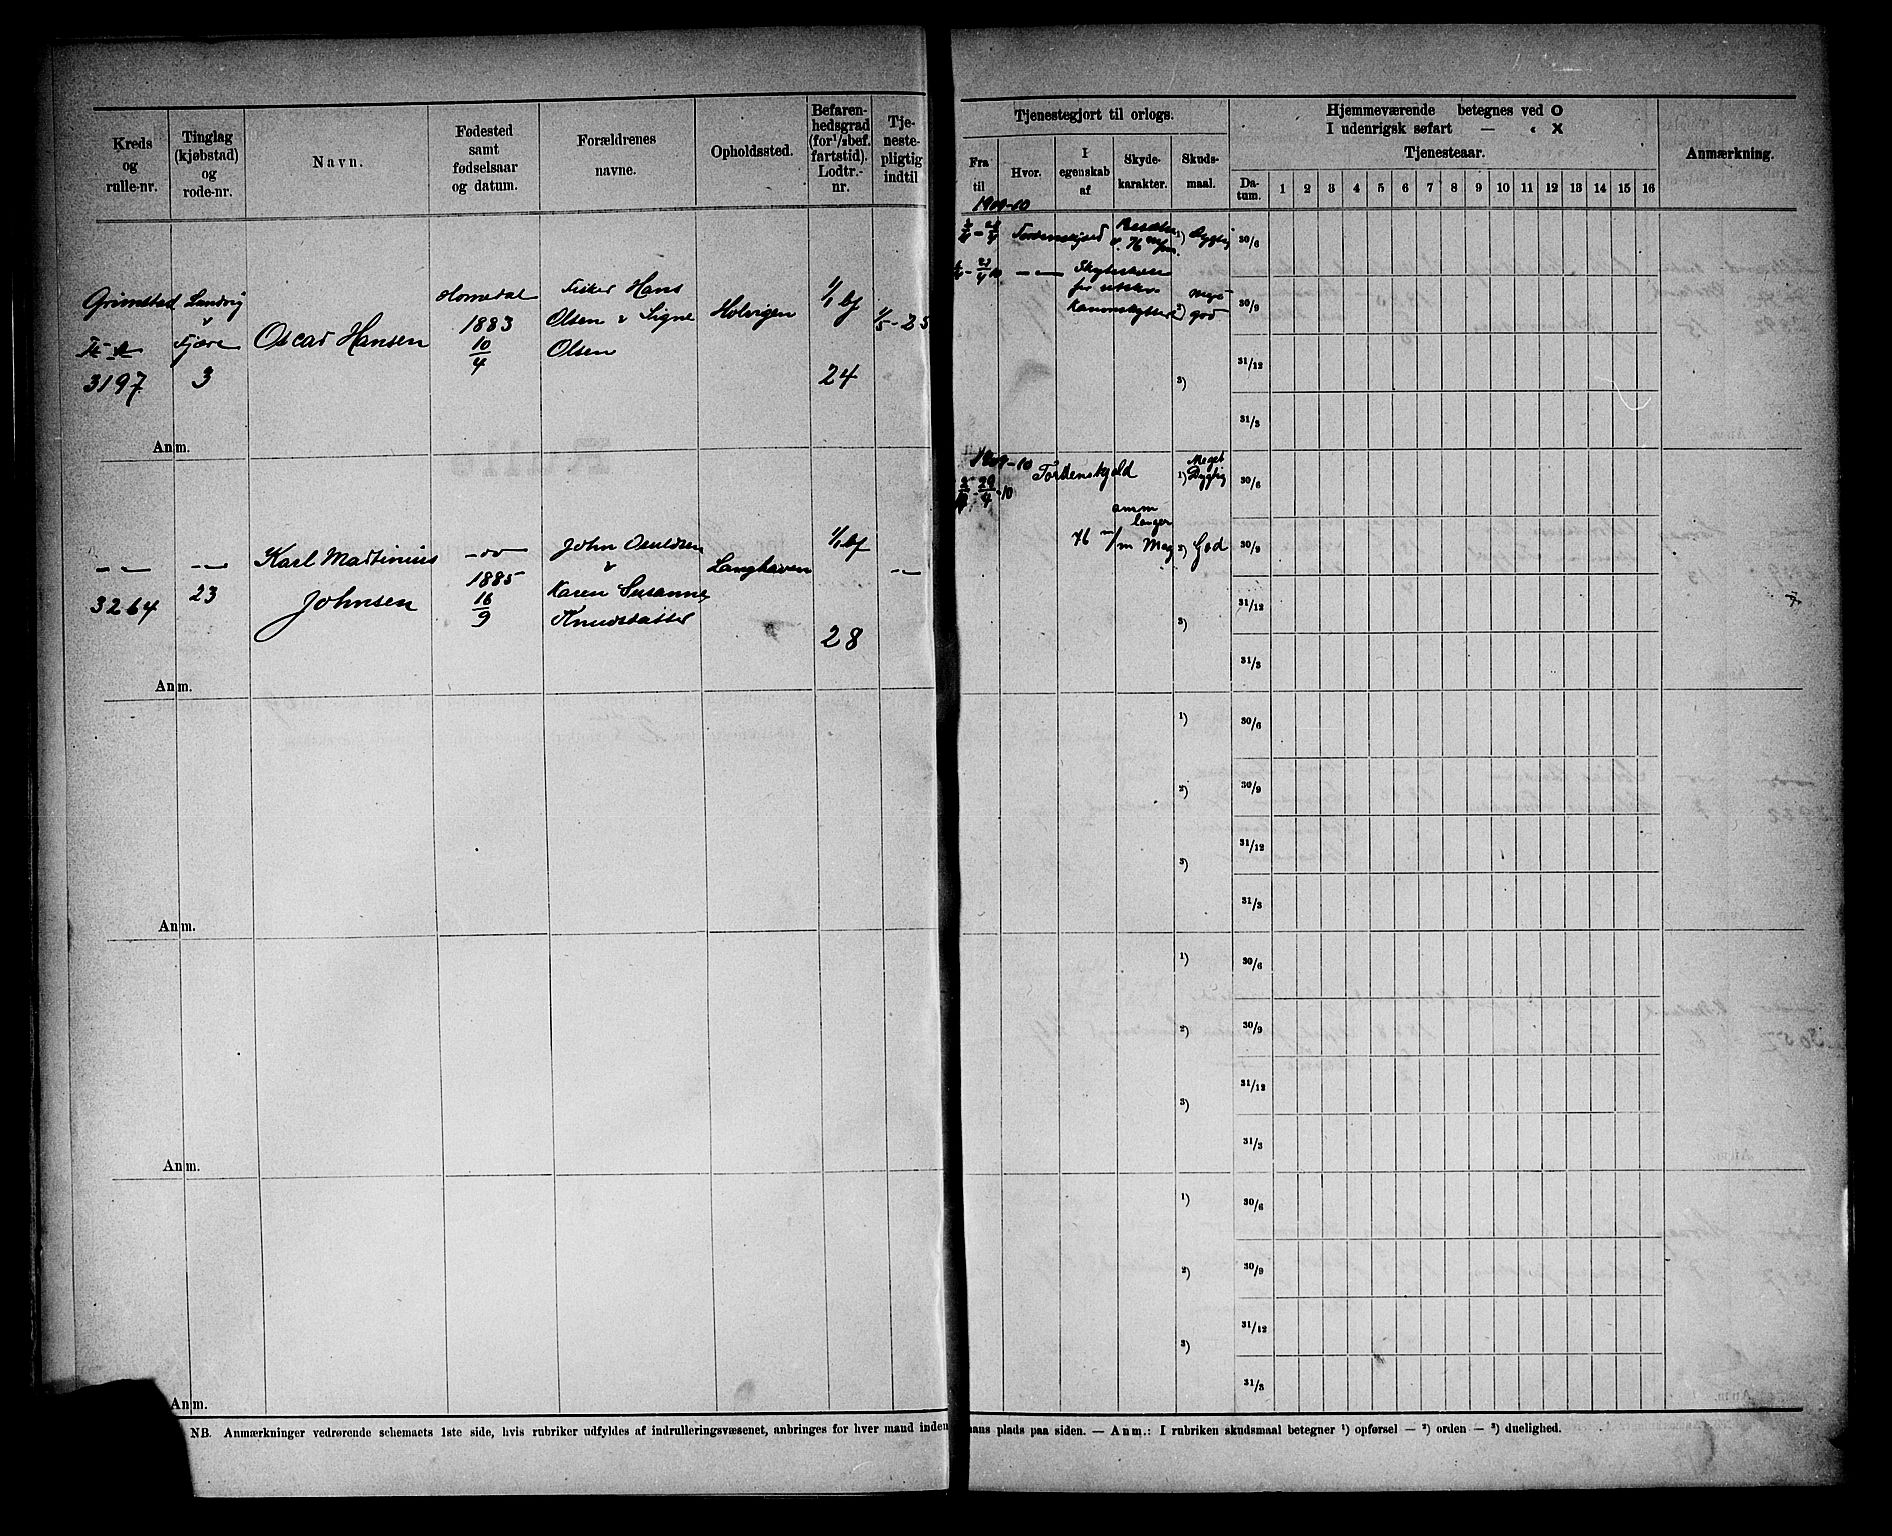 Kreds og rulle-nr.
Tinglag (kjøbstad) og rode-nr.
Navn.
Fødested samt fødselsaar og datum.
Forældrenes navne.
Opholdssted.
Befarenhedsgrad (for ½bef. fartstid). Lodtr.-nr.
Tjenestepligtig indtil
Tjenestegjort til orlogs.
Fra til
Hvor.
I egenskab af
Skydekarakter.
Skudsmaal.
Hjemmeværende betegnes ved O
I udenrigsk søfart — „ X
Tjenesteaar.
Datum.
1 2 3 4 5 6 7 8 9 10 11 12 13 14 15 16
Anmærkning.
Grimstad
3197
Landvig
v
Fjære
3
Oscar Hansen
Homedal
1883
10/4
Fisker Hans
Olsen & Signe
Olsen
Holvigen
1/1 bf
24
1/5-25
1909-10
Tordenskjold
1) Dygtig
30/6
Meget
2) god
30/9
3)
31/12
31/3
Anm.
3264
23
Karl Martinius
Johnsen
-do-
1885
16/9
John Osuldsen
&
Karen Susanne
Knudsdatter
Langhaven
1/1 bf
28
1909-10
Tordenskjold
76 m/m Mag
Meget
1) Dygtig
30/6
amm
langer
2) God
30/9
3)
31/12
31/3
Anm.
1) 30/6
2) 30/9
3) 31/12
31/3
Anm.
1) 30/6
2) 30/9
3) 31/12
31/3
Anm.
1) 30/6
2) 30/9
3) 31/12
31/3
Anm.
NB. Anmærkninger vedrørende schemaets 1ste side, hvis rubriker udfyldes af indrulleringsvæsenet, anbringes for hver mand inden
mans plads paa siden. — Anm.: I rubriken skudsmaal betegner ¹) opførsel — ²) orden — ³) duelighed.